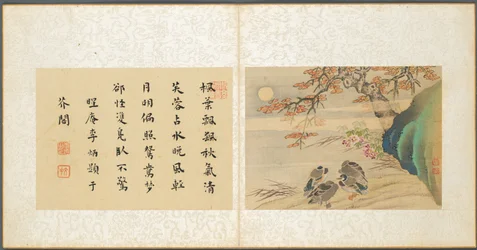 葉飄飄秋氣清
芙蓉占水晚風輕
月明偏照鴛鴦夢
卻怪雙鳧臥不驚
庵李炳于
芥閣